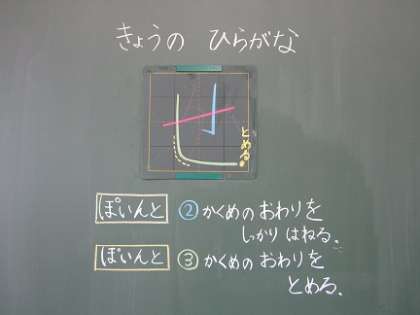 きょうの ひらがな
せ
とめる。
ぽいんと ②かくめのおわりを
しっかり はねる。
ぽいんと ③かくめのおわりを
とめる。